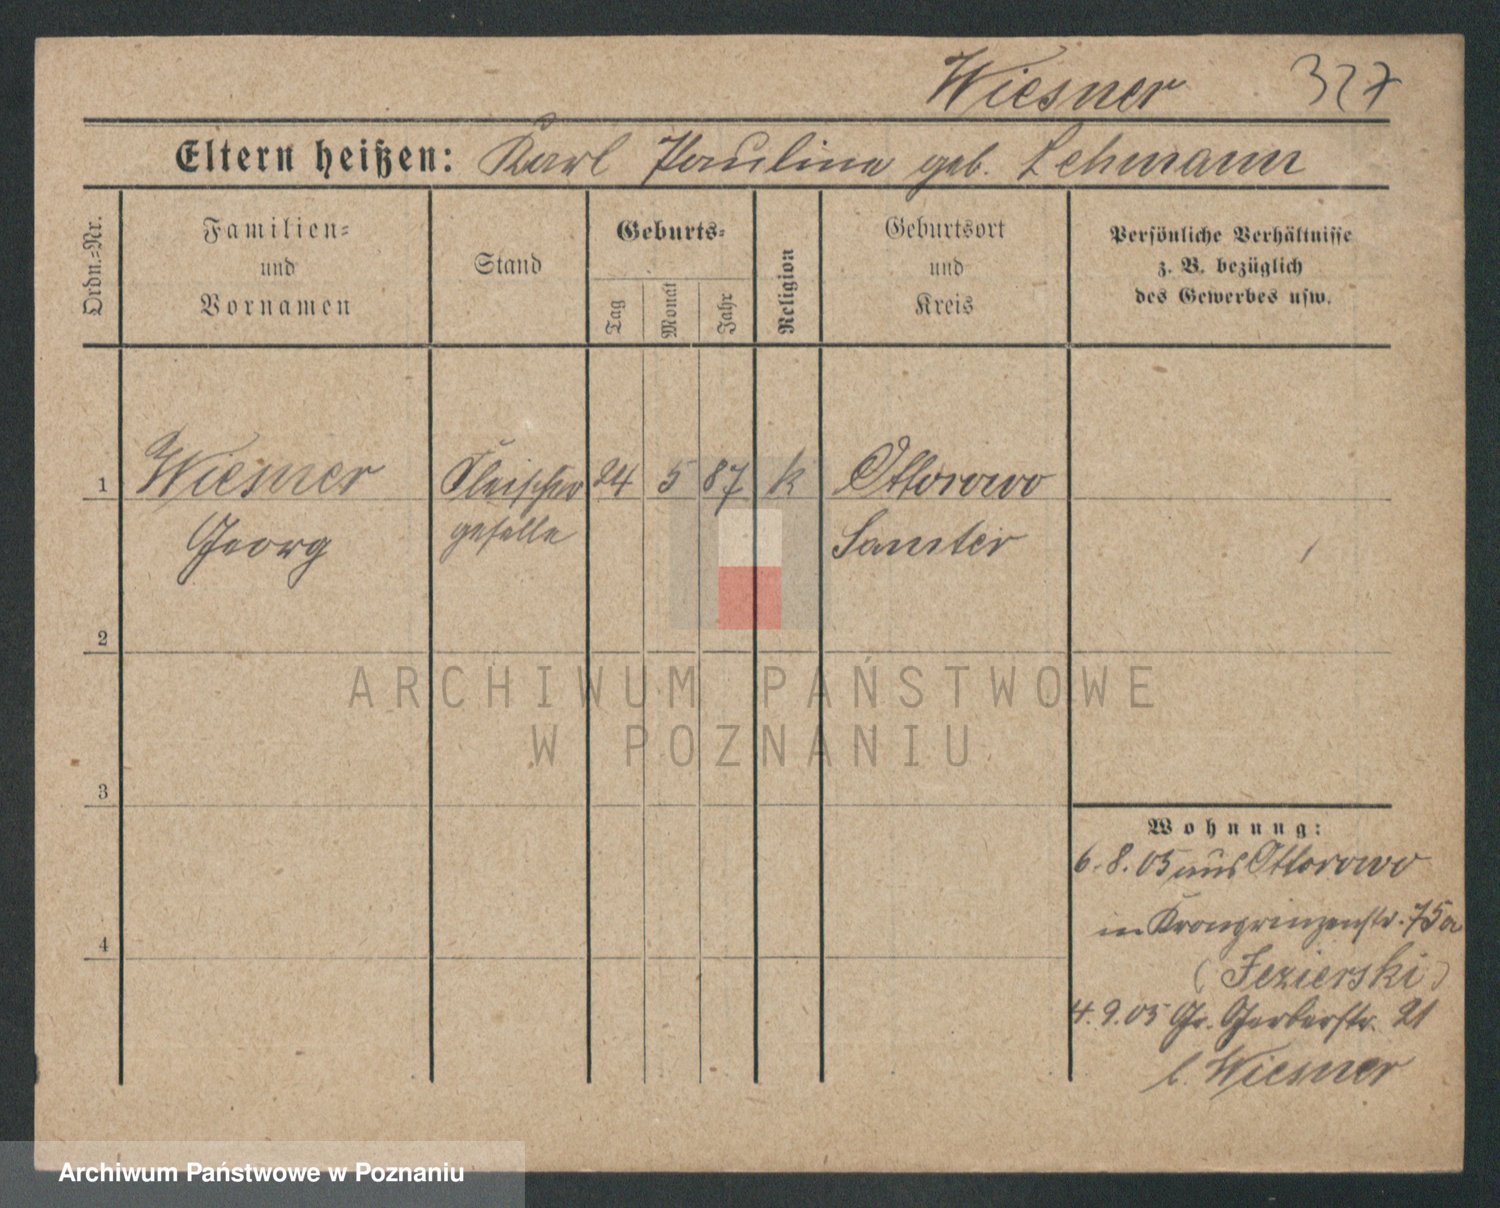 Wiesner 327
Eltern heißen: Karl Pauline geb. Lehmann
Ordn.-Nr.
Familien-
und
Vornamen
Stand
Geburts-
Tag
Monat
Jahr
Religion
Geburtsort
und
Kreis
Persönliche Verhältnisse
z. B. bezüglich
des Gewerbes usw.
1 Wiesner Fleischer 24 5 87 k Ottorowo
Georg geselle Samter
2
3
4
Wohnung:
6.8.05 aus Ottorowo
in Kronprinzenstr. 75a
(Jezierski)
4.9.05 Gr. Gerberstr. 21
b. Wiesner
ARCHIWUM PAŃSTWOWE
W POZNANIU
Archiwum Państwowe w Poznaniu